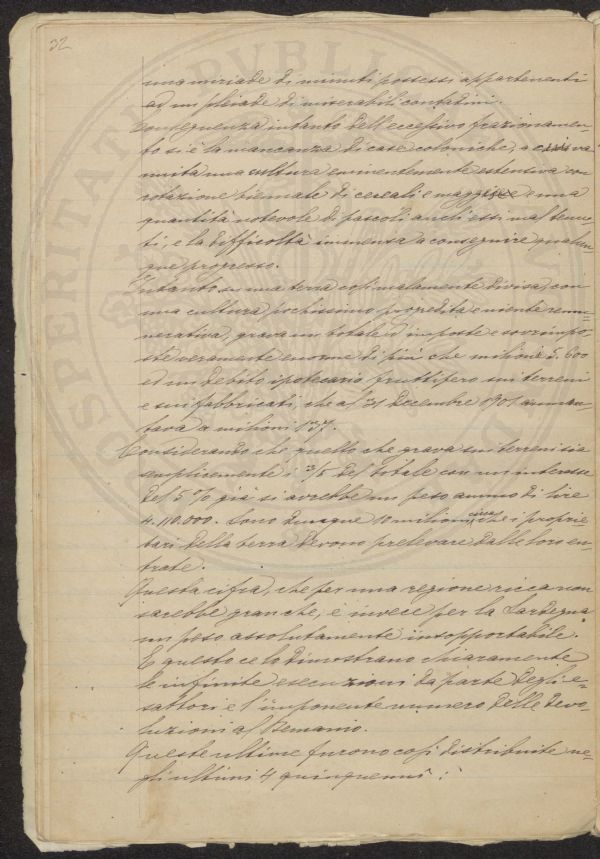 32
una miriade di minuti possessi appartenenti
ad un pleiade di miserabili contadini.
Conseguenza intanto dell'eccessivo frazionamen-
to si è la mancanza di case coloniche, a cui va
unita una cultura eminentemente estensiva con
rotazione biennale di cereali e maggese e una
quantità notevole di pascoli anch'essi mal tenu-
ti, e la difficoltà immensa a conseguire qualun-
que progresso.
Intanto su una terra così malamente divisa, con
una cultura pochissimo progredita e niente remu-
nerativa, grava un totale d'imposte e sovrimpo-
ste veramente enorme di più che milioni 5.600
ed un debito ipotecario fruttifero sui terreni
e sui fabbricati, che al 31 Decembre 1901 ammon-
tava a milioni 137.
Considerando che quello che grava sui terreni sia
semplicemente i 3/5 del totale con un interesse
del 5% già si avrebbe un peso annuo di lire
4.110.000. Sono dunque 10 milioni circa che i proprie-
tari della terra devono prelevare dalle loro en-
trate.
Questa cifra, che per una regione ricca non
sarebbe gran che, è invece per la Sardegna
un peso assolutamente insopportabile.
E questo ce lo dimostrano chiaramente
le infinite esecuzioni da parte degli e-
sattori e l'imponente numero delle devo-
luzioni al Demanio.
Queste ultime furono così distribuite ne-
gli ultimi 4 quinquenni :
PROSPERITATI PVBLICAE